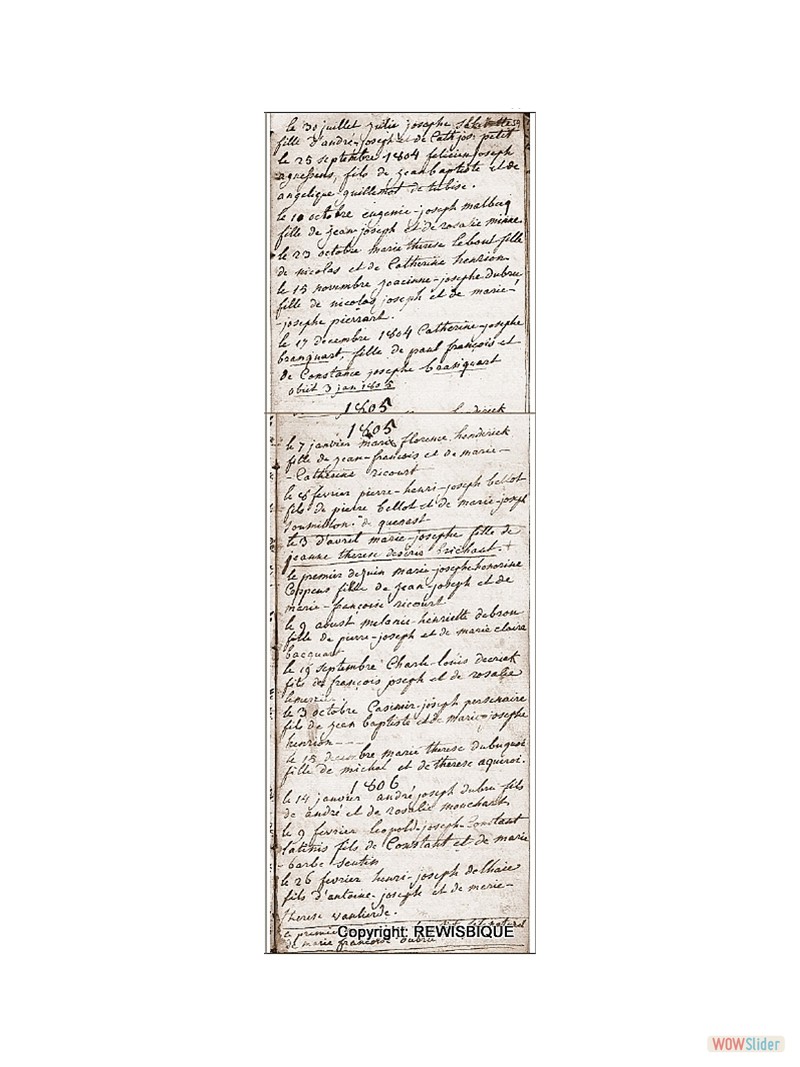 le 30 juillet julie josephe
fille d'andré-joseph et de Cath jos: petit
le 25 septembre 1804 felicien joseph
agnessens, fils de jean baptiste et de
angelique guillemot de tubise.
le 10 octobre eugenie-joseph malberg
fille de jean joseph et de rosalie minne.
le 23 octobre marie therese lebout fille
de nicolas et de Catherine henrion
le 15 novembre joacinne-josephe dubru
fille de nicolas joseph et de marie-
-josephe pierrart.
le 17 decembre 1804 Catherine-josephe
branquart, fille de paul françois et
de Constance josephe branquart
obiit 3 jan 1805
1805
1805
le 7 janvier marie florence hendrick
fille de jean-francois et de marie-
-Catherine ricourt
le 6 fevrier pierre-henri-joseph bellot
fils de pierre bellot et de marie-joseph
soumillon de quenast
le 3 d'avril marie-josephe fille de
jeanne therese desirée brichaut. +
le premier de juin marie-josephe honorine
Coppens fille de jean-joseph et de
marie-francoise ricourt
le 9 aoust melanie-henriette debrou
fille de pierre-joseph et de marie claire
bacquart
le 19 septembre Charle-louis decriek
fils de françois joseph et de rosalie
le 3 octobre Casimir-joseph persenaire
fils de jean baptiste et de marie-josephe
henrion
le 15 decembre marie therese dubuquoi
fille de michel et de therese aqueroi.
1806
le 14 janvier andré joseph dubru fils
de andré et de rosalie mouchart
le 9 fevrier leopold-joseph-Constant
latinis fils de Constant et de marie
-barbe seutin
le 26 fevrier henri-joseph delhaie
fils d'antoine-joseph et de marie-
therese vanlierde.
le premier
de marie francoise dubru
Copyright: REWISBIQUE
WOWSlider